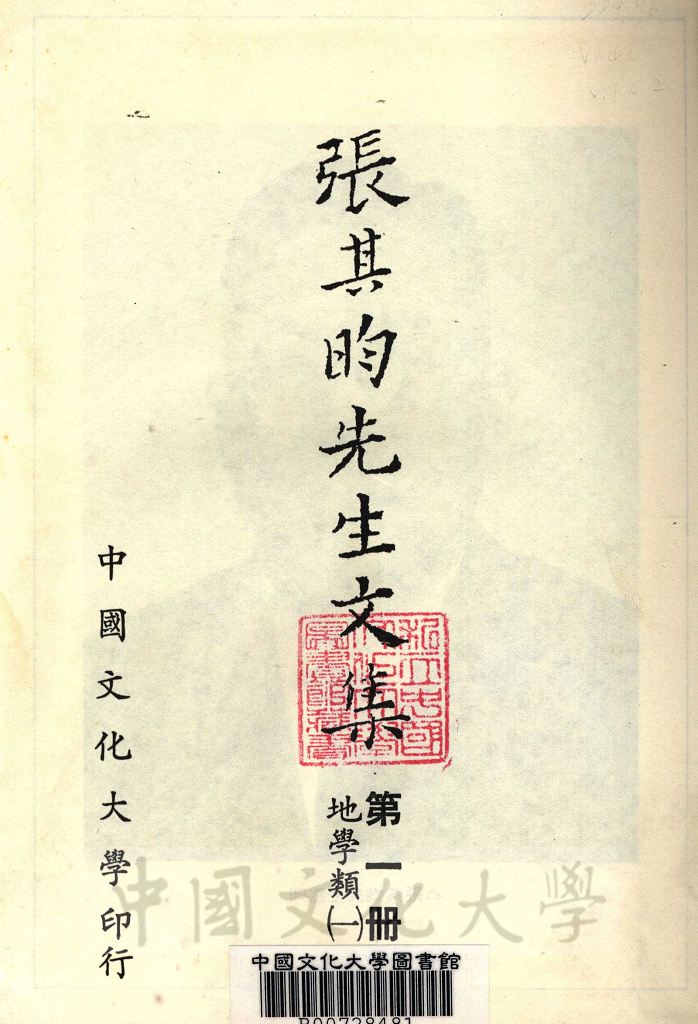 張其昀先生文集
第一册
地學類㈠
中國文化大學印行
中國文化大學
中國文化大學圖書館
B00728481